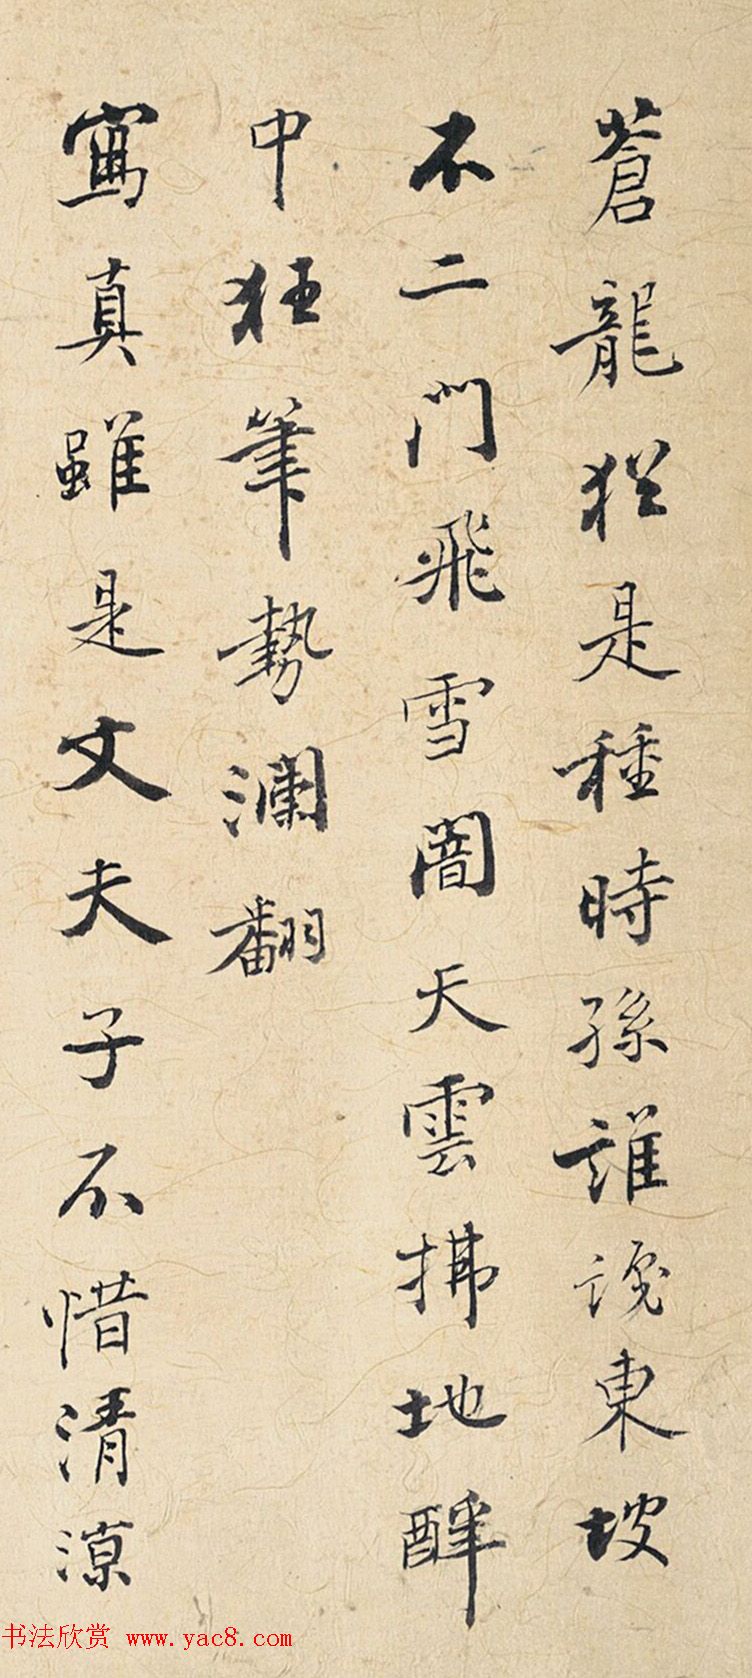 蒼龍猶是種時孫誰識東坡
不二門飛雪闇天雲拂地醉
中狂筆勢瀾翻
寫真雖是文夫子不惜清涼
书法欣赏 www.yac8.com